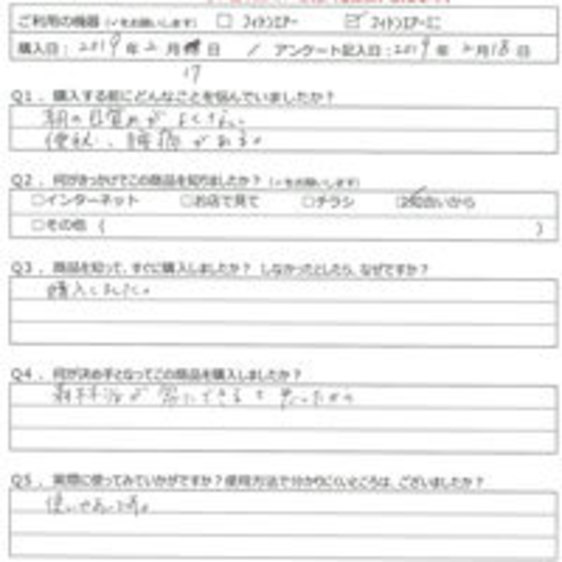 ご利用の機器 (✓をお願いします) □ フィトンエアー ☑ フィトンエアーミニ
購入日: 2019年 2月 日 / アンケート記入日: 2019年 2月18日
17
Q1. 購入する前にどんなことを悩んでいましたか?
朝の目覚めが よくない。
便秘、腰痛がある。
Q2. 何がきっかけでこの商品を知りましたか? (✓をお願いします)
□インターネット □お店で見て □チラシ ☑知合いから
□その他 ( )
Q3. 商品を知って、すぐに購入しましたか? しなかったとしたら、なぜですか?
購入しました。
Q4. 何が決め手となってこの商品を購入しましたか?
森林浴が 家にできると 思ったから
Q5. 実際に使ってみていかがですか?使用方法で分かりにくいところは、ございましたか?
使いやすいです。